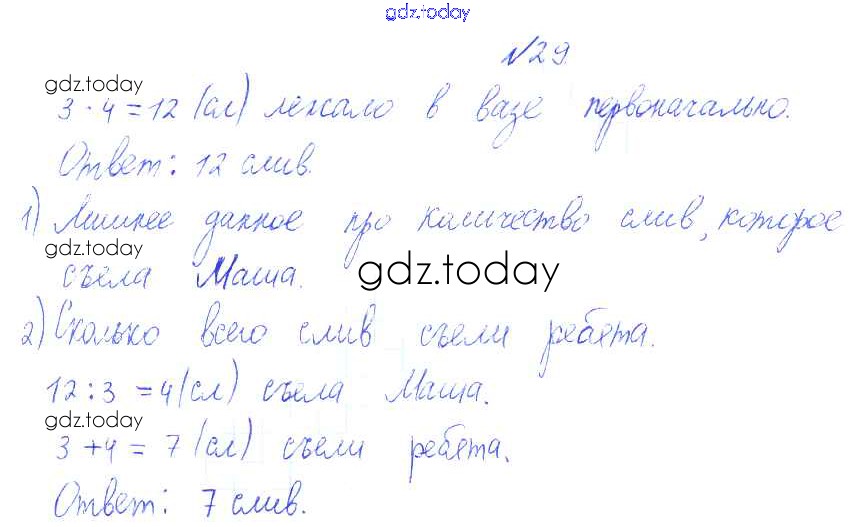 gdz.today
№29
gdz.today
3 · 4 = 12 (сл) лежало в вазе первоначально.
Ответ: 12 слив.
1) Лишнее данное про количество слив, которое
gdz.today
съела Маша.
gdz.today
2) Сколько всего слив съели ребята.
12 : 3 = 4 (сл) съела Маша.
gdz.today
3 + 4 = 7 (сл) съели ребята.
Ответ: 7 слив.